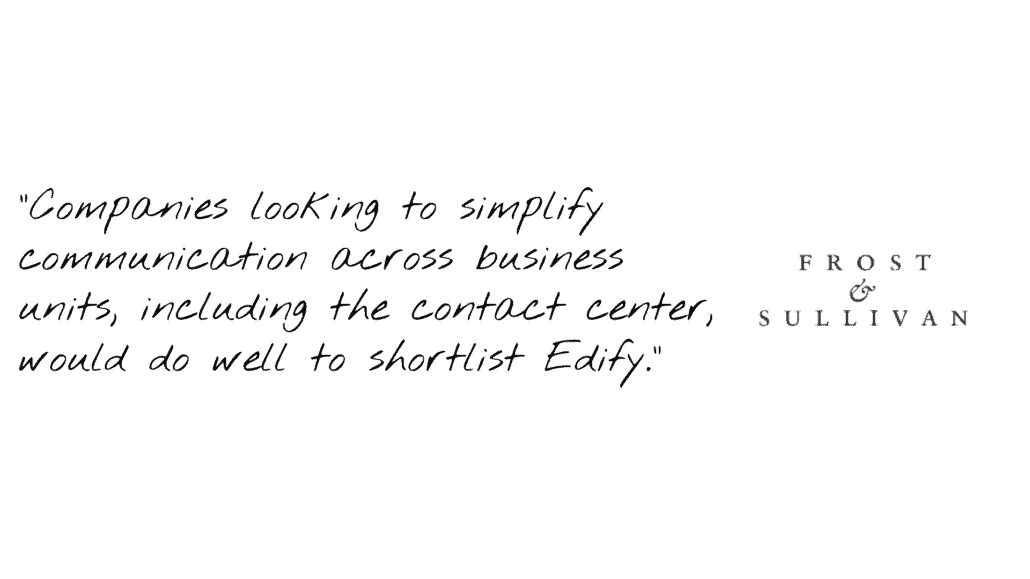 "Companies looking to simplify
communication across business
units, including the contact center,
would do well to shortlist Edify."
FROST
&
SULLIVAN